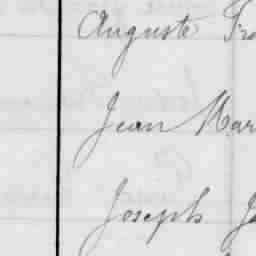 Auguste Fra
Jean Mar
Joseph Ja